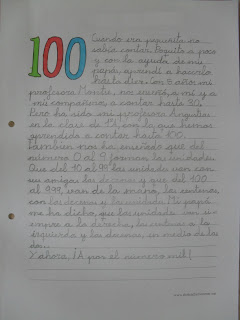 100
Cuando era pequeñita no
sabía contar. Poquito a poco
y con la ayuda de mis
papás aprendí a hacerlo
hasta diez. Con 5 años mi
profesora Montse, nos enseñó, a mí y a
mis compañeros, a contar hasta 30,
Pero ha sido mi profesora Angelines
en la clase de 1º, con la que hemos
aprendido a contar hasta 100.
También nos ha enseñado que del
número 0 al 9 forman las unidades.
Que del 10 al 99 las unidades van con
sus amigas las decenas y que del 100
al 999, van de la mano, las centenas,
con las decenas y las unidades. Mi papá
me ha dicho, que las unidades van si-
empre a la derecha, las centenas a la
izquierda y las decenas en medio de las
dos.
Y ahora ¡A por el número mil!